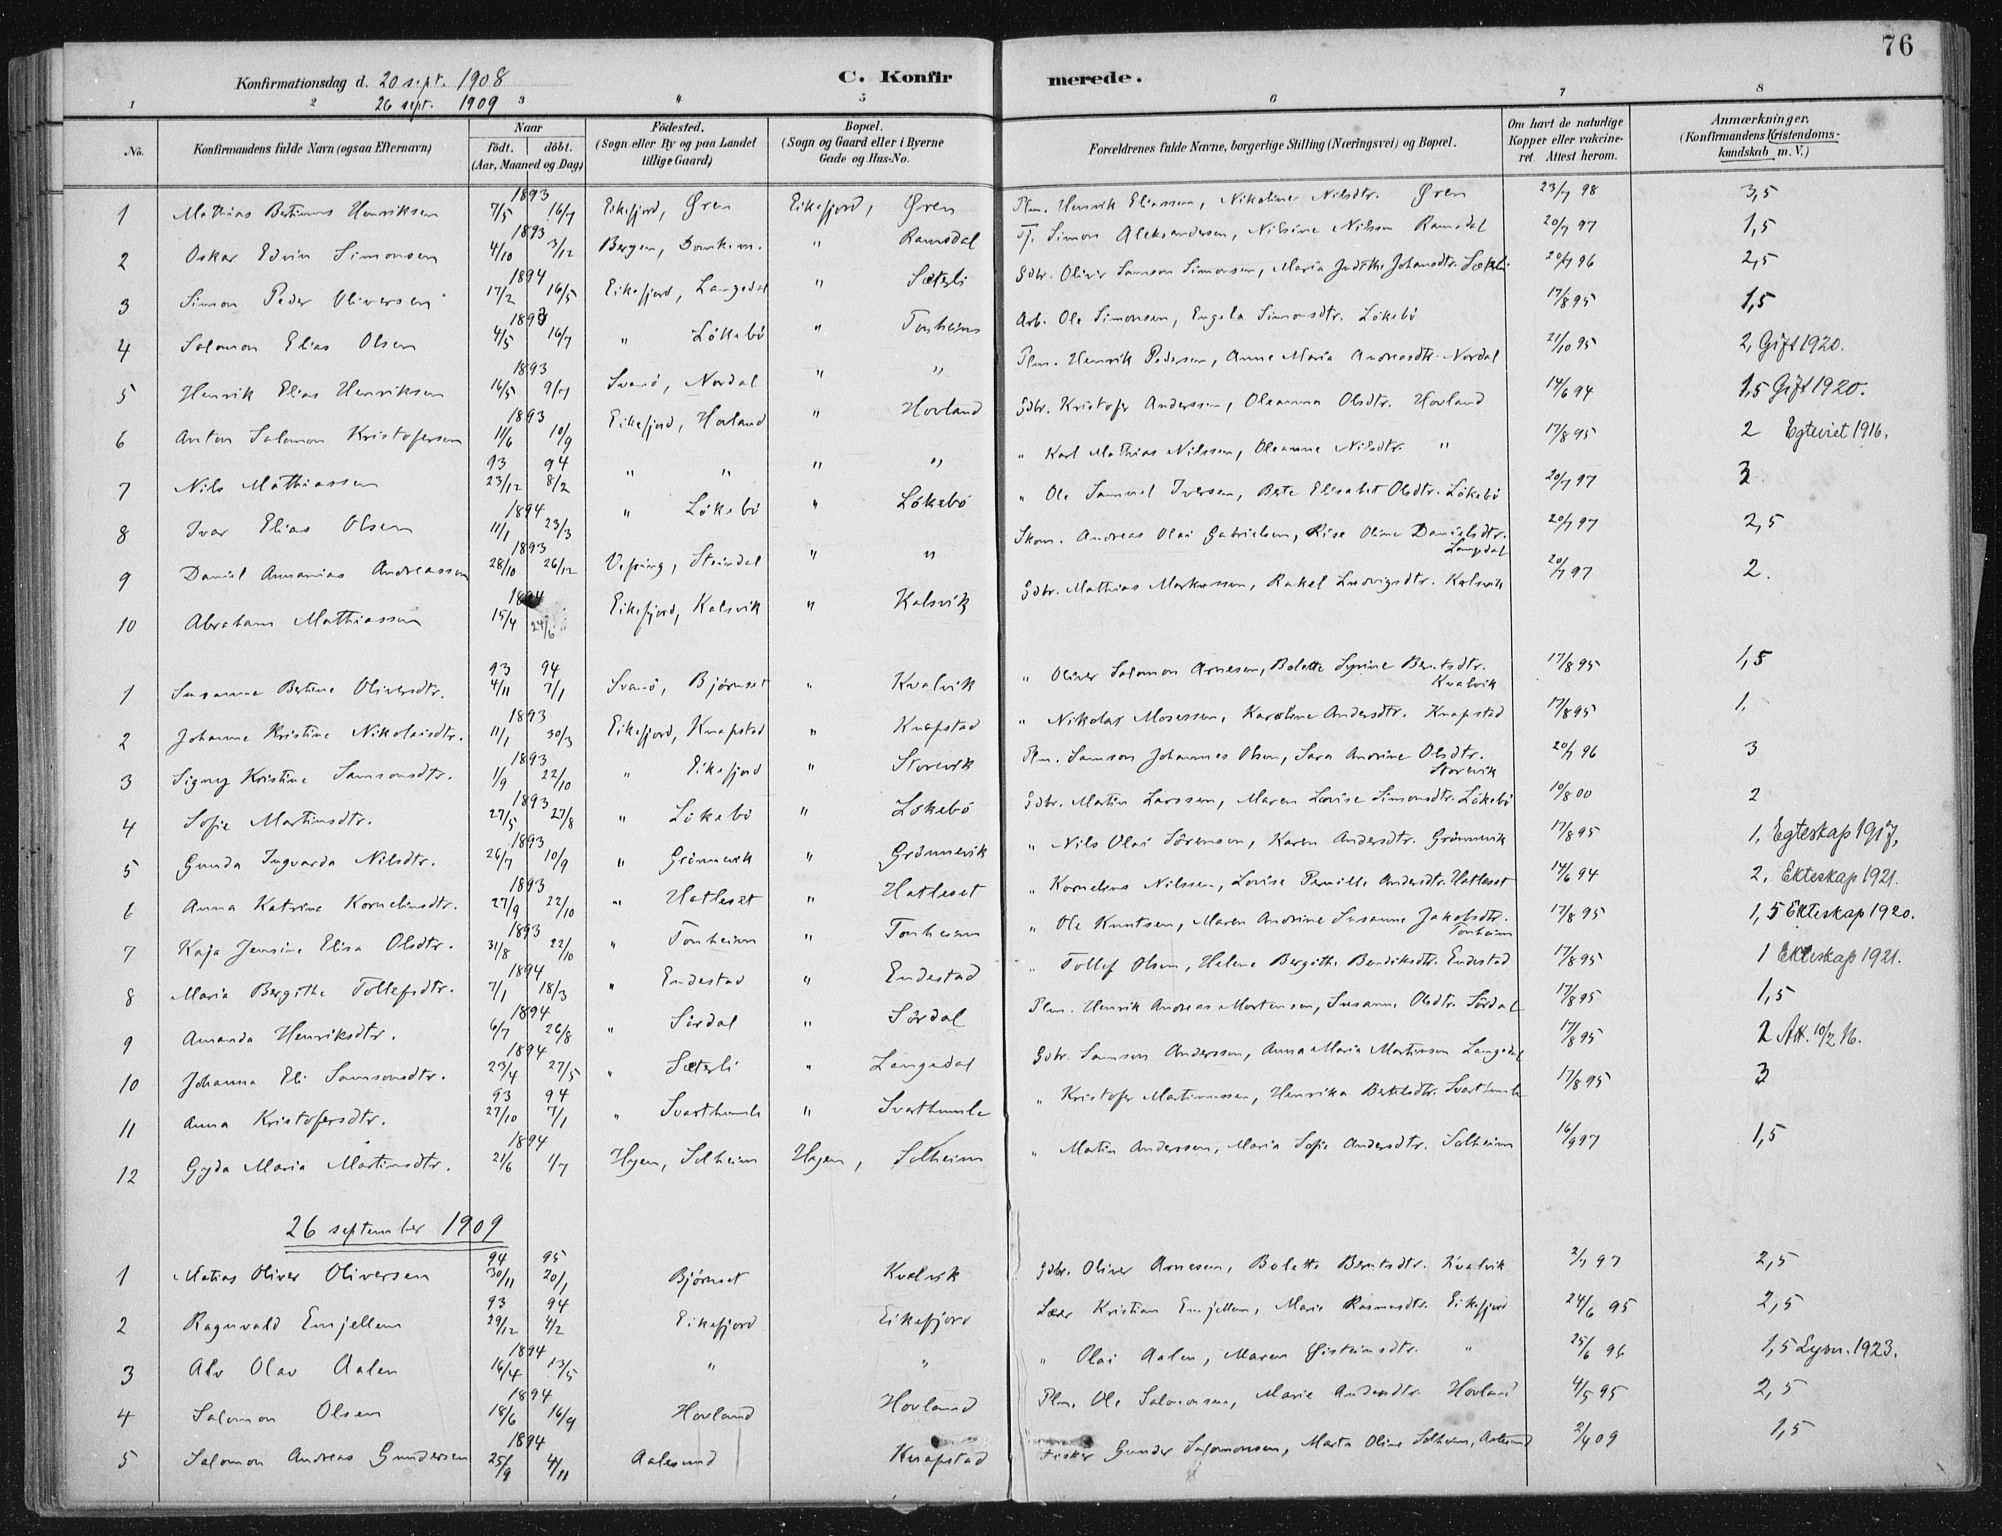 76
Konfirmationsdag d. 20 sept. 1908
26 sept. 1909
C. Konfirmerede.
1 2 3 4 5 6 7 8
No. Konfirmandens fulde Navn (ogsaa Efternavn) Naar født. døbt. (Aar, Maaned og Dag) Fødested. (Sogn eller By og paa Landet tillige Gaard) Bopæl. (Sogn og Gaard eller i Byerne Gade og Hus-No. Forældrenes fulde Navne, borgerlige Stilling (Næringsvei) og Bopæl. Om havt de naturlige Kopper eller vakcineret Attest herom. Anmærkninger. (Konfirmandens Kristendomskundskab m. V.)
1 Mathias Bertinus Henriksen 1893 7/5 16/7 Eikefjord, Øren Eikefjord, Øren Plm. Henrik Eliassen, Nikoline Nilsdtr. Øren 23/7 98 3,5
2 Oskar Edvin Simonsen 1893 4/10 3/12 Bergen, Domkirk. " Ramsdal Tj. Simon Aleksandersen, Nilsine Nilsen Ramsdal 20/7 97 1,5
3 Simon Peder Oliversen 1894 17/2 16/5 Eikefjord, Langedal " Sæterli Gdbr. Oliver Samson Simonsen, Maria Judithe Johansdtr. Sæterli 20/7 96 2,5
4 Salomon Elias Olsen 1893 4/5 16/7 " Lökebö " Tonheim Arb. Ole Simonsen, Engela Simonsdtr. Lökebö 17/8 95 1,5
5 Henrik Elias Henriksen 1893 16/5 9/7 Svanö, Nordal " " Plm. Henrik Pedersen, Anne Maria Andreasdtr. Nordal 21/10 95 2, Gift 1920.
6 Anton Salomon Kristofersen 1893 11/6 10/9 Eikefjord, Hovland " Hovland Gdbr. Kristofer Anderssen, Oleanna Olsdtr. Hovland 14/6 94 1,5 Gift 1920.
7 Nils Mathiassen 93 94 23/12 8/2 " " " " " Karl Mathias Nilssen, Oleanne Nilsdtr. " 17/8 95 2 Egteviet 1916.
8 Ivar Elias Olsen 1894 11/1 23/3 " Lökebö " Lökebö " Ole Samuel Iversen, Berte Elisabet Olsdtr. Lökebö 20/7 97 3
9 Daniel Annanias Andreassen 1893 28/10 26/12 Vefring, Steindal " " Skom. Andreas Olai Gabrielsen, Lise Oline Danielsdtr. Langedal 20/7 97 2,5
10 Abraham Matthiassen 1894 15/4 24/6 Eikefjord, Kalsvik " Kalsvik Gdbr. Mathias Markussen, Rakel Ludvigsdtr. Kalsvik 20/7 97 2.
1 Susanne Bertine Oliversdtr. 93 94 4/11 7/1 Svanö, Bjørnset " Kvalvik " Oliver Salomon Arnesen, Bolette Syrine Berntsdtr. Kvalvik 17/8 95 1,5
2 Johanne Kristine Nikolaisdtr. 1893 11/1 30/3 Eikefjord, Knapstad " Knapstad " Nikolai Mosessen, Karoline Andersdtr. Knapstad 17/8 95 1.
3 Signy Kristine Samsonsdtr. 1893 1/9 22/10 " Eikefjord " Storevik Plm. Samson Johannes Olsen, Sara Andrine Olsdtr. Storevik 20/7 96 3
4 Sofie Martinsdtr. 1893 27/5 27/8 " Lökebö " Lökebö Gdbr. Martin Larssen, Maren Lovise Simonsdtr. Lökebö 10/8 00 2
5 Gunda Ingvarda Nilsdtr. 1893 26/7 10/9 " Grönnevik " Grönnevik " Nils Olai Sörensen, Karen Andersdtr. Grönnevik 17/8 95 1, Egteskap 1917,
6 Anna Katrine Korneliusdtr. 1893 27/9 22/10 " Hatleset " Hatleset " Kornelius Nilssen, Lovise Pernille Andersdtr. Hatleset 14/6 94 2, Ekteskap 1921.
7 Kaja Jensine Elisa Olsdtr. 1893 31/8 22/10 " Tonheim " Tonheim " Ole Knutsen, Maren Andrine Susanne Jakobsdtr. Tonheim 17/8 95 1,5 Ekteskap 1920.
8 Maria Bergithe Tollefsdtr. 1894 7/1 18/3 " Endestad " Endestad " Tollef Olsen, Helene Bergithe Bendiksdtr. Endestad 17/8 95 1 Ekteskap 1921.
9 Amanda Henriksdtr. 1894 6/7 26/8 " Sördal " Sördal Plm. Henrik Andreas Mortensen, Susanne Olsdtr. Sördal 17/8 95 1,5
10 Johanna Eli Samsonsdtr. 1894 23/4 27/5 " Sæterli " Langedal Gdbr. Samson Anderssen, Anna Maria Martinsen Langedal 17/8 95 2 Att. 10/2 16.
11 Anna Kristofersdtr. 93 94 27/10 7/1 " Svarthumle " Svarthumle " Kristofer Martinussen, Henrika Bertelsdtr. Svarthumle 17/8 95 3
12 Gyda Maria Martinsdtr. 1894 21/6 1/7 Hyen, Solheim Hyen, Solheim " Martin Anderssen, Maria Sofie Andersdtr. Solheim 16/9 97 1,5
26 september 1909
1 Matias Oliver Oliversen 94 95 30/11 20/1 Bjørnset Kvalvik Gdbr. Oliver Arnesen, Bolette Berntsdtr. Kvalvik 2/7 97 2,5
2 Ragnvald Emjellem 93 94 29/12 4/2 Eikefjord Eikefjord Lær Kristian Emjellem, Marie Rasmusdtr. Eikefjord 24/6 95 2,5
3 Alv Olav Aalen 1894 16/4 13/5 " " " Olai Aalen, Maren Øisteinsdtr. " 25/6 96 1,5 Lysn. 1923.
4 Salomon Olsen 1894 18/6 16/9 Hovland Hovland Plm. Ole Salomonsen, Marie Andersdtr. Hovland 4/5 95 2,5
5 Salomon Andreas Gundersen 1894 25/9 4/11 Aalesund Knapstad Fisker Gunder Salomonsen, Marta Oline Solheim, Aalesund 2/4 09 1,5